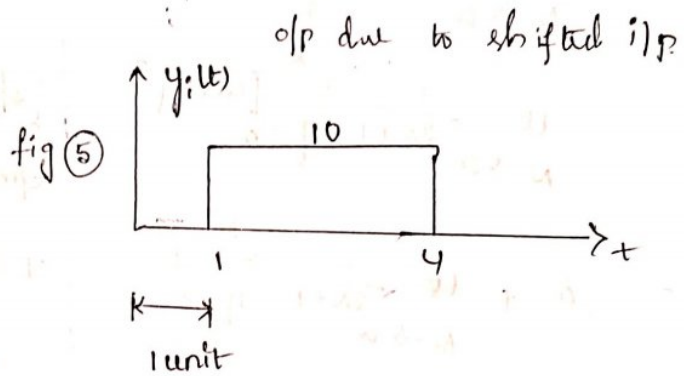 o/p due to shifted i/p
yi(t)
fig 5
10
1
4
t
1 unit